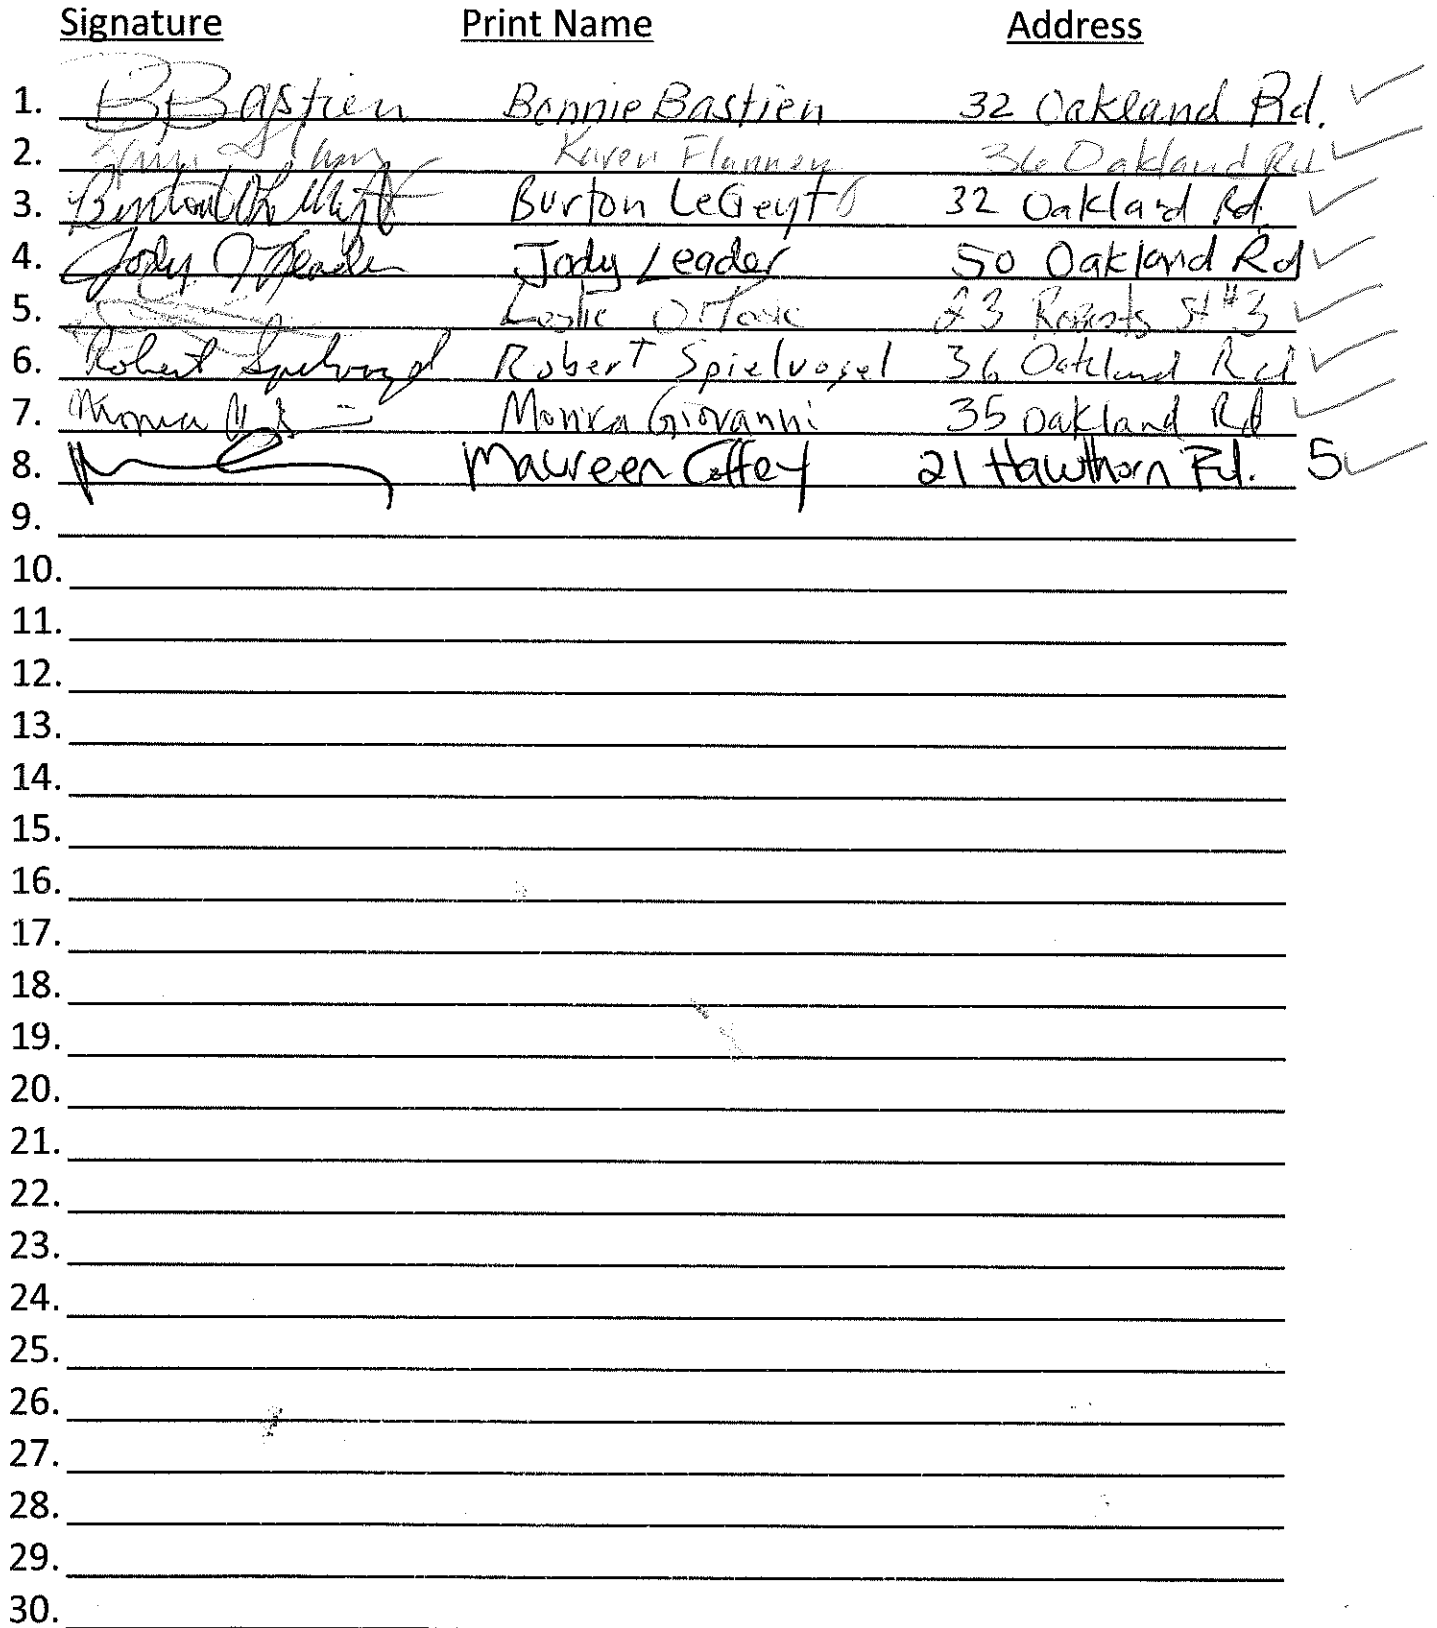 Signature Print Name Address
1. BBastien Bonnie Bastien 32 Oakland Rd.
2. Karen Flannery 36 Oakland Rd
3. Burton LeGeyt 32 Oakland Rd.
4. Jody Leader Jody Leader 50 Oakland Rd
5. Leslie 23 Roberts St #3
6. Robert Spielvogel Robert Spielvogel 36 Oakland Rd
7. Monica Monica Giovanni 35 Oakland Rd
8. Maureen Coffey 21 Hawthorn Rd. 5
9.
10.
11.
12.
13.
14.
15.
16.
17.
18.
19.
20.
21.
22.
23.
24.
25.
26.
27.
28.
29.
30.